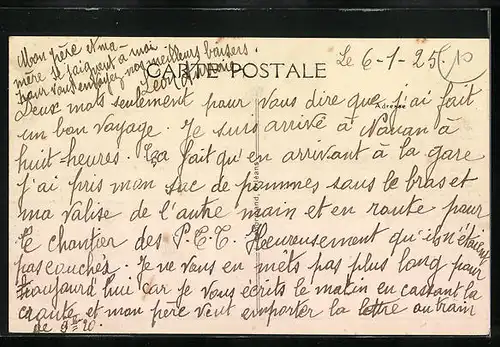 Mon père et ma
mère se joignent à moi
pour vous envoyer nos meilleurs baisers.
Léon
Le 6-1-25
10
CARTE POSTALE
Adresse
Deux mots seulement pour vous dire que j'ai fait
un bon voyage. Je suis arrivé à Nanan à
huit heures. Ça fait qu'en arrivant à la gare
j'ai pris mon sac de pommes sous le bras et
ma valise de l'autre main et en route pour
le chantier des P.T.T. Heureusement qu'ils n'étaient
pas couchés. Je ne vous en mets pas plus long pour
aujourd'hui car je vous écrits le matin en cassant la
croute et mon père veut emporter la lettre au train
de 9h 20.